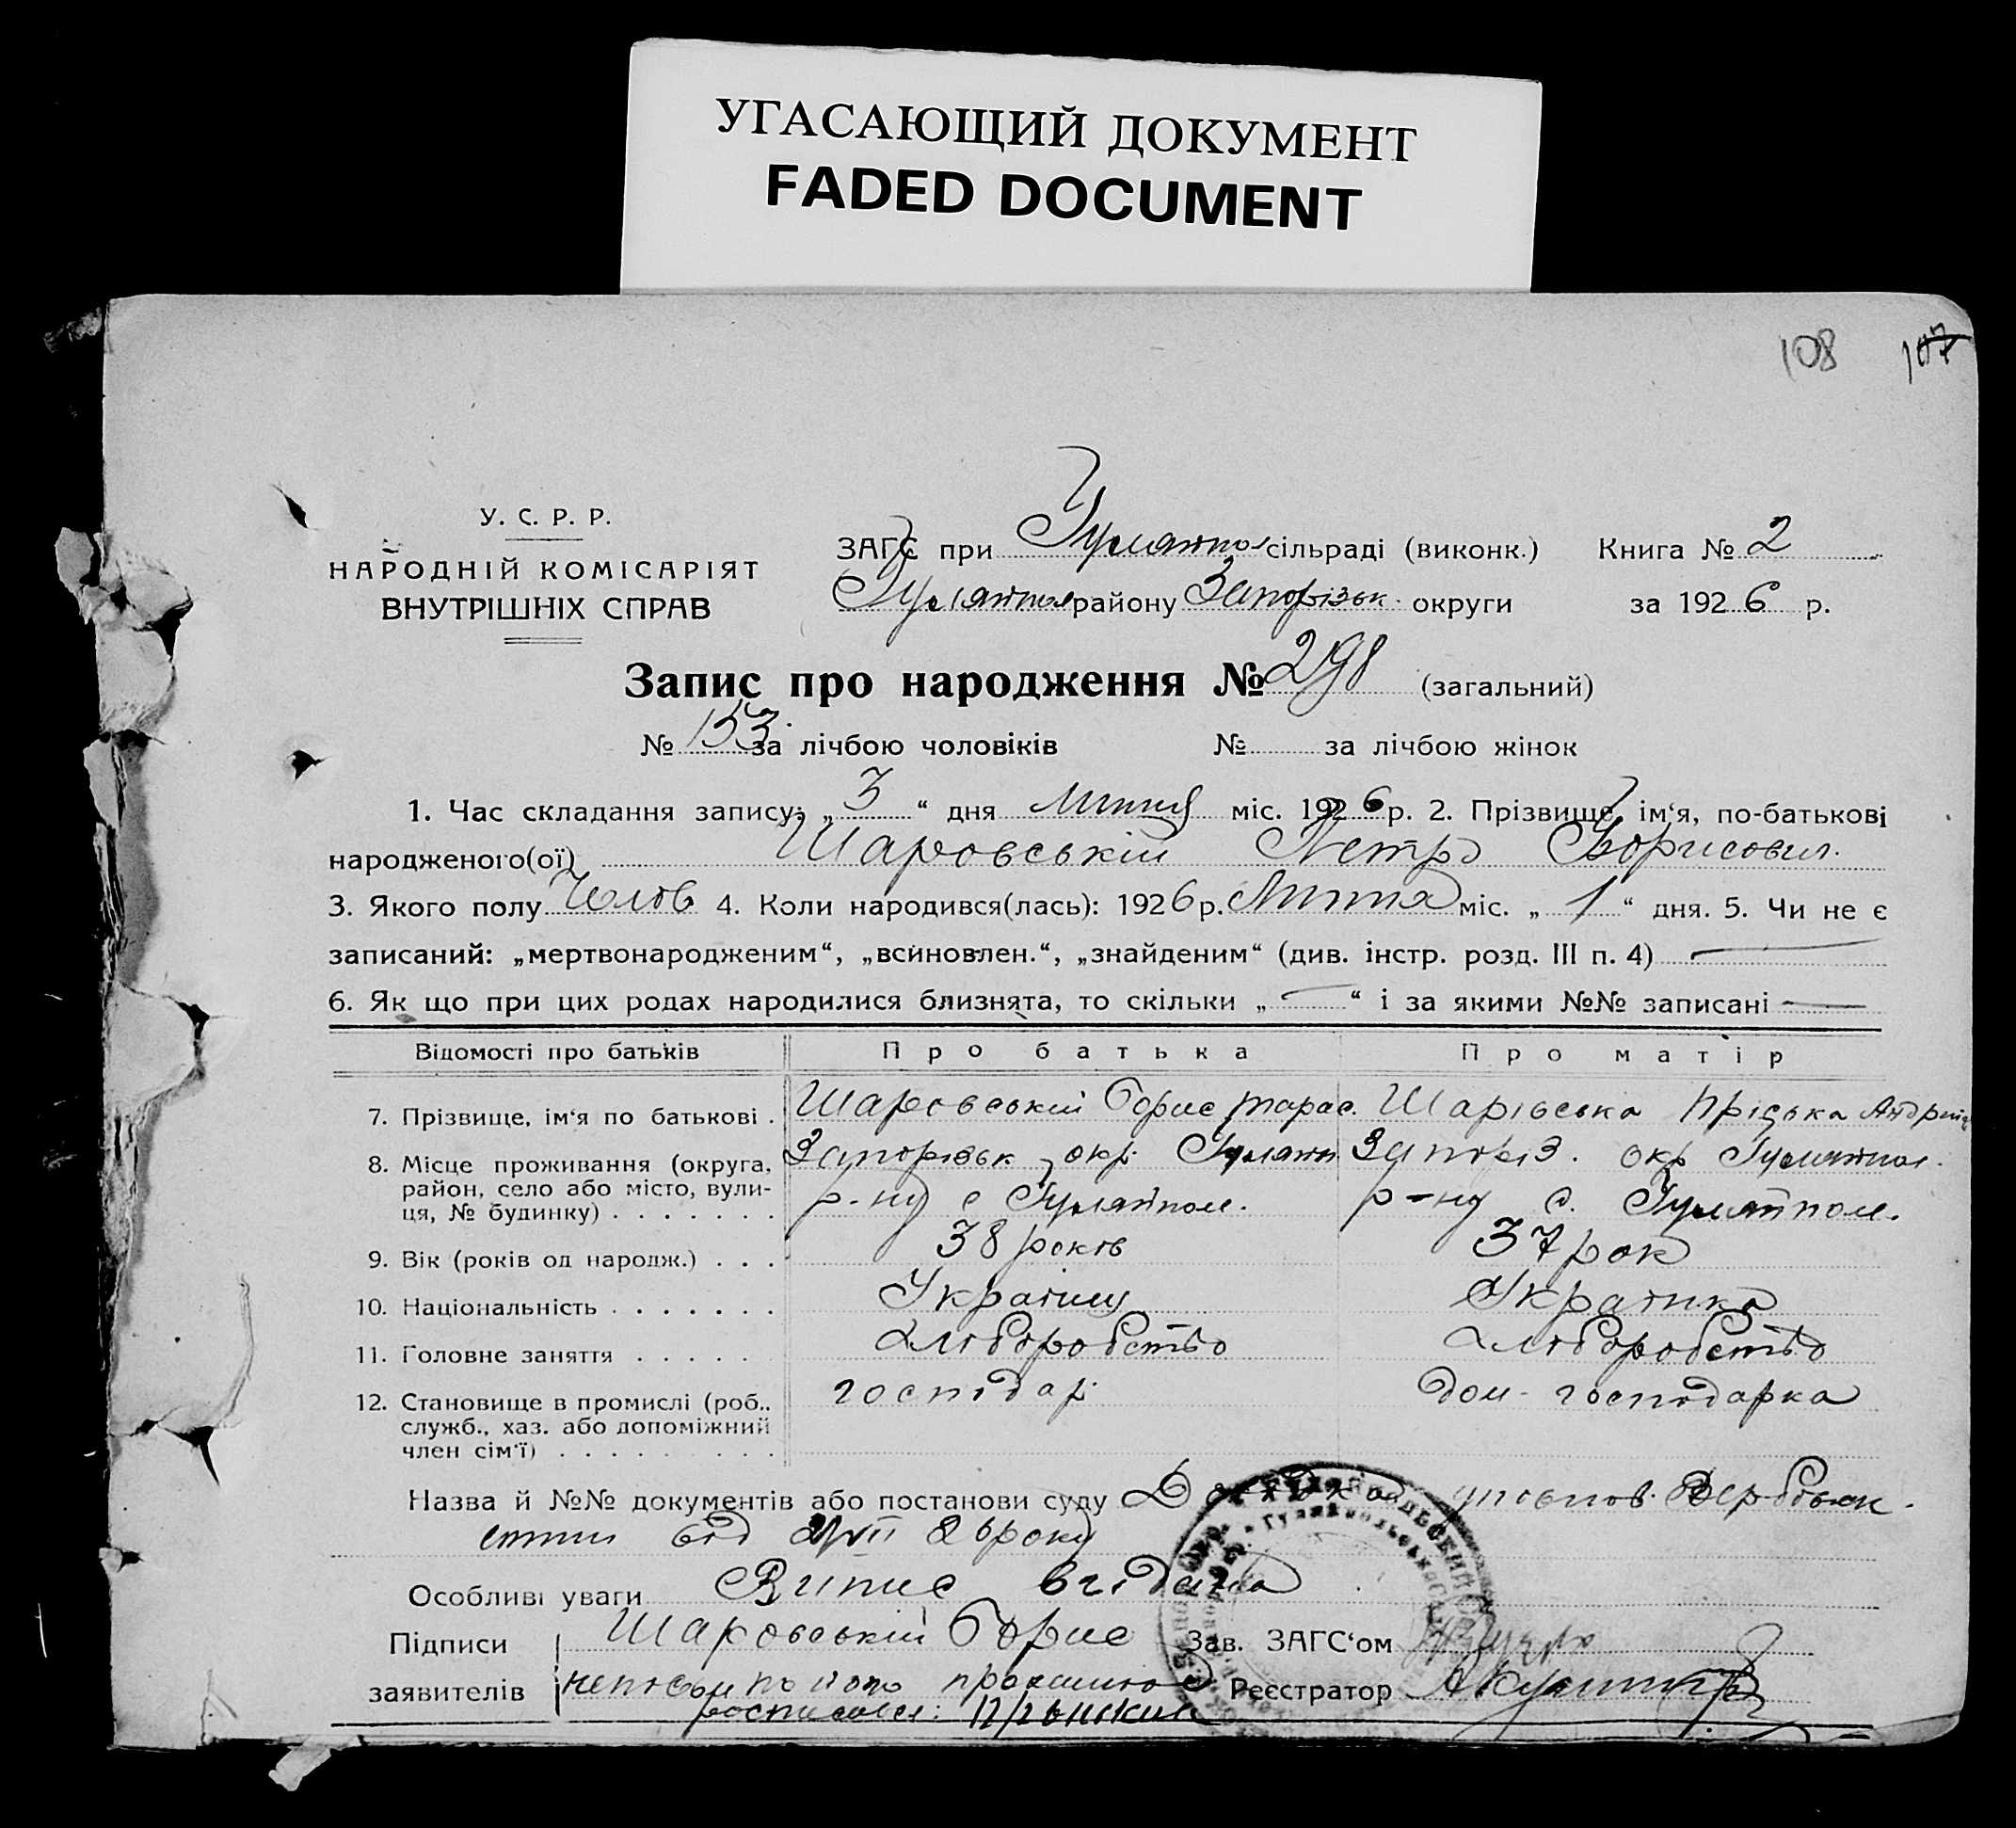 УГАСАЮЩИЙ ДОКУМЕНТ
FADED DOCUMENT
108 107
У. С. Р. Р.
НАРОДНІЙ КОМІСАРІЯТ
ВНУТРІШНІХ СПРАВ
ЗАГС при Гуляйпол сільраді (виконк.) Книга № 2
Гуляйпол району Запорізьк. округи за 1926 р.
Запис про народження № 298 (загальний)
№ 153 за лічбою чоловіків № за лічбою жінок
1. Час складання запису: „3“ дня Липня міс. 1926 р. 2. Прізвище, ім‘я, по-батькові
народженого(ої) Шаровській Петро Борисович
3. Якого полу Чолов 4. Коли народився(лась): 1926 р. Липня міс. „1“ дня. 5. Чи не є
записаний: „мертвонародженим“, „всиновлен.“, „знайденим“ (див. інстр. розд. III п. 4) —
6. Як що при цих родах народилися близнята, то скільки „—“ і за якими №№ записані —
Відомості про батьків Про батька Про матір
7. Прізвище, ім‘я по батькові . Шаровській Борис Тарас. Шарівська Пріська Андрий
8. Місце проживання (округа, район, село або місто, вулиця, № будинку) Запорізьк окр. Гуляйп Запоріз. окр Гуляйпол.
р-ну с Гуляйпол. р-ну с. Гуляйпол.
9. Вік (років од народж.) . . . 38 років 37 рок
10. Національність . . . . . . . Українц Українка
11. Головне заняття . . . . . Хліборобство Хліборобство
12. Становище в промислі (роб., служб., хаз. або допоміжний член сім‘ї) господар. дом-господарка
Назва й №№ документів або постанови суду
від року
Особливі уваги Випис видана
Підписи Шаровській Борис Зав. ЗАГС‘ом
заявителів Реєстратор